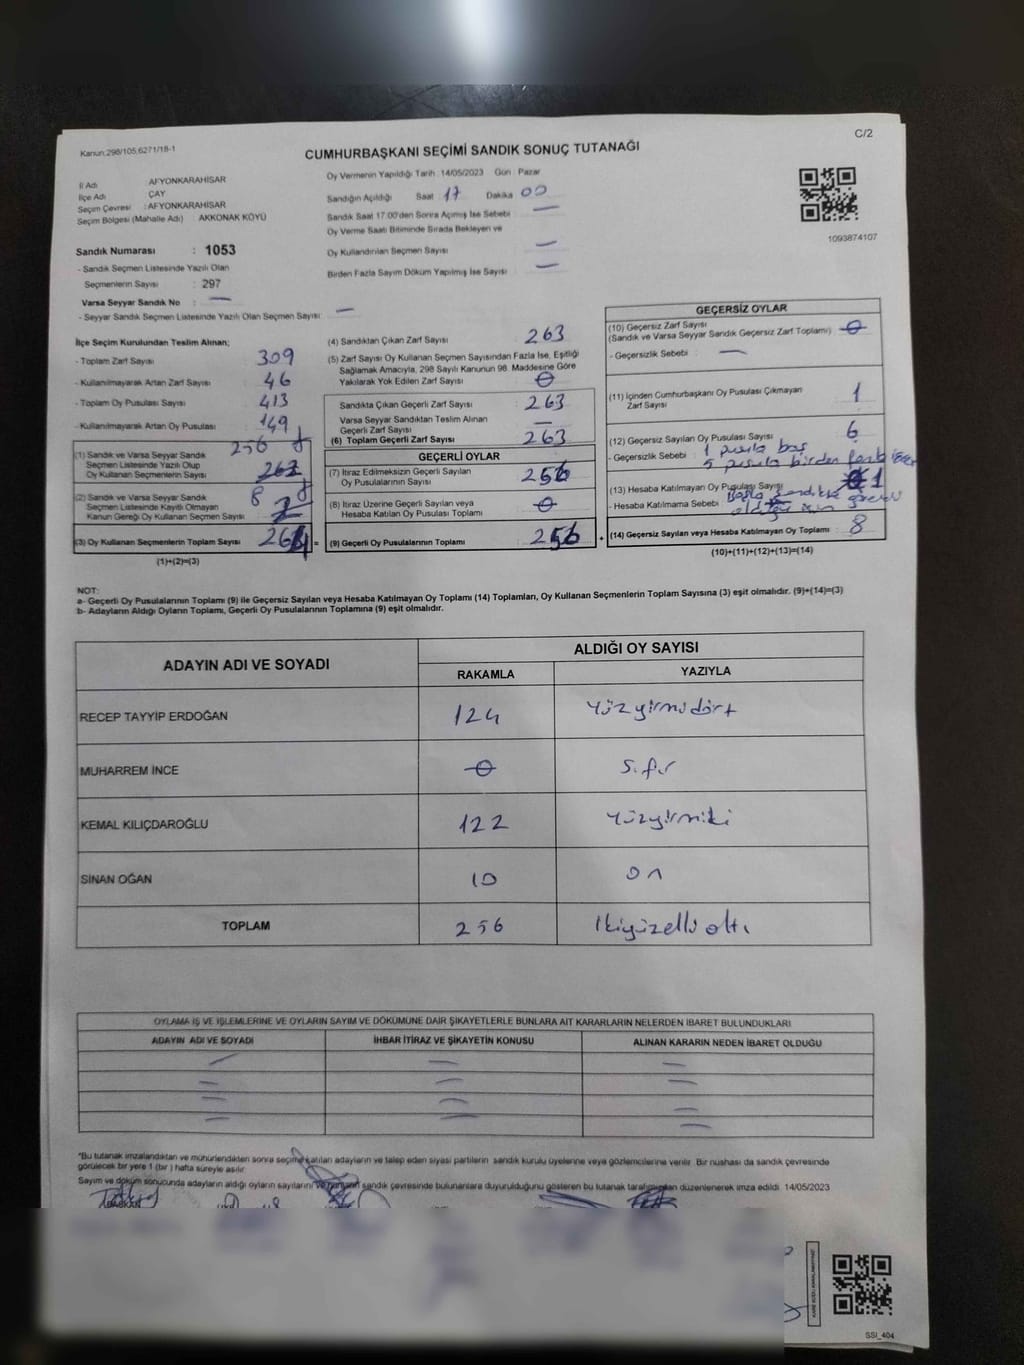 C/2
Kanun:298/105,6271/18-1
CUMHURBAŞKANI SEÇİMİ SANDIK SONUÇ TUTANAĞI
İl Adı : AFYONKARAHİSAR
İlçe Adı : ÇAY
Seçim Çevresi : AFYONKARAHİSAR
Seçim Bölgesi (Mahalle Adı) AKKONAK KÖYÜ
Sandık Numarası : 1053
- Sandık Seçmen Listesinde Yazılı Olan
Seçmenlerin Sayısı : 297
Varsa Seyyar Sandık No : —
- Seyyar Sandık Seçmen Listesinde Yazılı Olan Seçmen Sayısı : —
Oy Vermenin Yapıldığı Tarih :14/05/2023 Gün : Pazar
Sandığın Açıldığı Saat 17 Dakika 00
Sandık Saat 17:00'den Sonra Açılmış İse Sebebi —
Oy Verme Saati Bitiminde Sırada Bekleyen ve
Oy Kullandırılan Seçmen Sayısı —
Birden Fazla Sayım Döküm Yapılmış İse Sayısı —
1093874107
İlçe Seçim Kurulundan Teslim Alınan;
- Toplam Zarf Sayısı 309
- Kullanılmayarak Artan Zarf Sayısı 46
- Toplam Oy Pusulası Sayısı 413
- Kullanılmayarak Artan Oy Pusulası 149
256
(1) Sandık ve Varsa Seyyar Sandık
Seçmen Listesinde Yazılı Olup
Oy Kullanan Seçmenlerin Sayısı
8
(2) Sandık ve Varsa Seyyar Sandık
Seçmen Listesinde Kayıtlı Olmayan
Kanun Gereği Oy Kullanan Seçmen Sayısı
(3) Oy Kullanan Seçmenlerin Toplam Sayısı 264 =
(1)+(2)=(3)
(4) Sandıktan Çıkan Zarf Sayısı : 263
(5) Zarf Sayısı Oy Kullanan Seçmen Sayısından Fazla İse, Eşitliği
Sağlamak Amacıyla, 298 Sayılı Kanunun 98. Maddesine Göre
Yakılarak Yok Edilen Zarf Sayısı : 0
Sandıkta Çıkan Geçerli Zarf Sayısı : 263
Varsa Seyyar Sandıktan Teslim Alınan
Geçerli Zarf Sayısı : —
(6) Toplam Geçerli Zarf Sayısı : 263
GEÇERLİ OYLAR
(7) İtiraz Edilmeksizin Geçerli Sayılan
Oy Pusulalarının Sayısı : 256
(8) İtiraz Üzerine Geçerli Sayılan veya
Hesaba Katılan Oy Pusulası Toplamı : 0
(9) Geçerli Oy Pusulalarının Toplamı : 256 +
GEÇERSİZ OYLAR
(10) Geçersiz Zarf Sayısı
(Sandık ve Varsa Seyyar Sandık Geçersiz Zarf Toplamı) : 0
- Geçersizlik Sebebi : —
(11) İçinden Cumhurbaşkanı Oy Pusulası Çıkmayan
Zarf Sayısı : 1
(12) Geçersiz Sayılan Oy Pusulası Sayısı : 6
- Geçersizlik Sebebi : 1 pusula boş
5 pusula birden fazla
(13) Hesaba Katılmayan Oy Pusulası Sayısı : 1
- Hesaba Katılmama Sebebi : Başka sandıkta görevli
olduğu için
(14) Geçersiz Sayılan veya Hesaba Katılmayan Oy Toplamı : 8
(10)+(11)+(12)+(13)=(14)
NOT:
a- Geçerli Oy Pusulalarının Toplamı (9) ile Geçersiz Sayılan veya Hesaba Katılmayan Oy Toplamı (14) Toplamları, Oy Kullanan Seçmenlerin Toplam Sayısına (3) eşit olmalıdır. (9)+(14)=(3)
b- Adayların Aldığı Oyların Toplamı, Geçerli Oy Pusulalarının Toplamına (9) eşit olmalıdır.
ADAYIN ADI VE SOYADI
ALDIĞI OY SAYISI
RAKAMLA YAZIYLA
RECEP TAYYİP ERDOĞAN 124 Yüzyirmidört
MUHARREM İNCE 0 Sıfır
KEMAL KILIÇDAROĞLU 122 Yüzyirmiki
SİNAN OĞAN 10 On
TOPLAM 256 İkiyüzelli altı
OYLAMA İŞ VE İŞLEMLERİNE VE OYLARIN SAYIM VE DÖKÜMÜNE DAİR ŞİKAYETLERLE BUNLARA AİT KARARLARIN NELERDEN İBARET BULUNDUKLARI
ADAYIN ADI VE SOYADI İHBAR İTİRAZ VE ŞİKAYETİN KONUSU ALINAN KARARIN NEDEN İBARET OLDUĞU
*Bu tutanak imzalandıktan ve mühürlendikten sonra seçime katılan adayların ve talep eden siyasi partilerin sandık kurulu üyelerine veya gözlemcilerine verilir. Bir nüshası da sandık çevresinde
görülecek bir yere 1 (bir ) hafta süreyle asılır.
Sayım ve döküm sonucunda adayların aldığı oyların sayılarını ve sandık çevresinde bulunanlara duyurulduğunu gösteren bu tutanak tarafımızdan düzenlenerek imza edildi. 14/05/2023
BAŞKAN
SSI_404